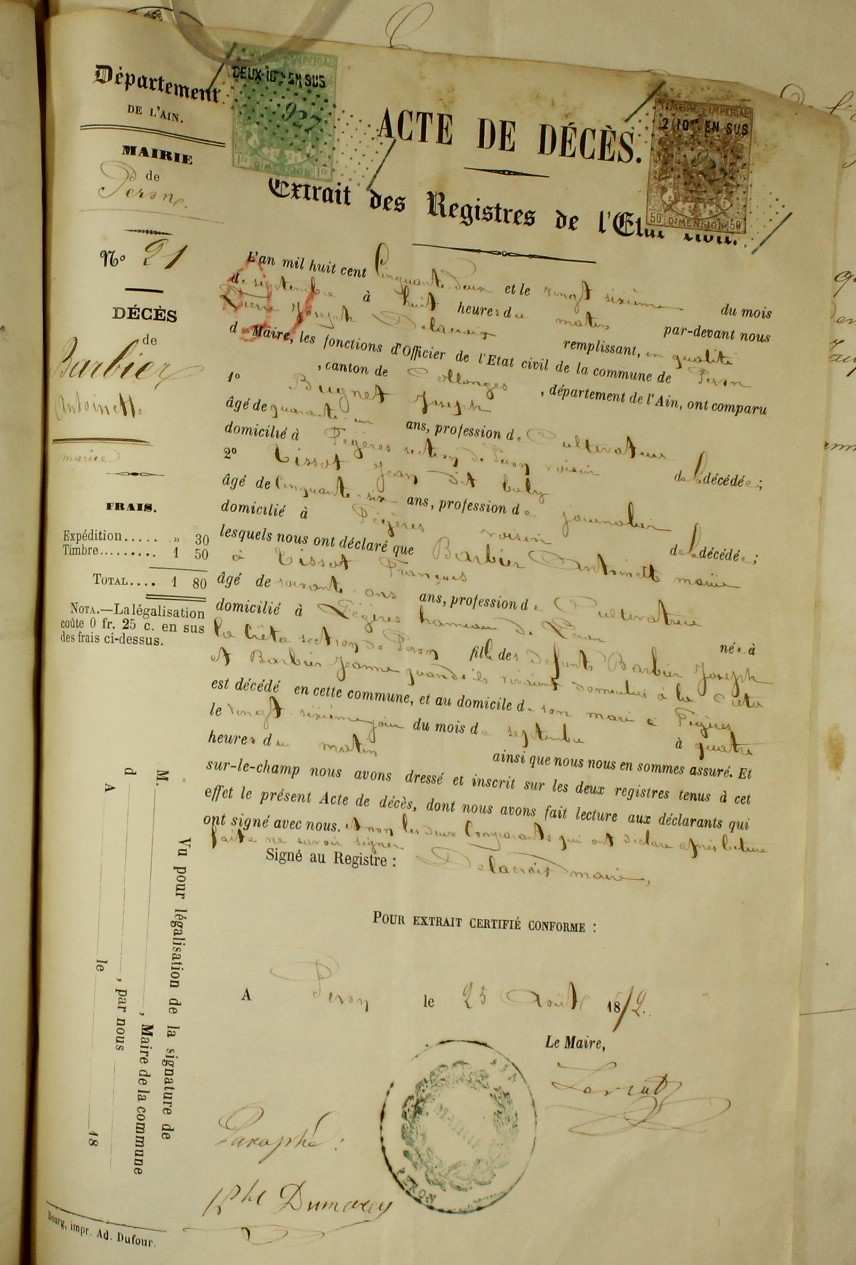 Département
DE L'AIN.
MAIRIE
de
Péron
N° 21
DÉCÈS
de
Barbier
Antoinette
mariée
FRAIS.
Expédition..... » 30
Timbre......... 1 50
TOTAL.... 1 80
NOTA.—La légalisation
coûte 0 fr. 25 c. en sus
des frais ci-dessus.
DEUX 10es EN SUS
927
TIMBRE IMPERIAL
2 10es EN SUS
50 DIMENSION 50
ACTE DE DÉCÈS.
Extrait des Registres de l'Etat Civil.
L'an mil huit cent Cinquante deux et le vingt sixième du mois
de septembre à huit heures du matin par-devant nous
Pierre Joseph Delacroix remplissant, en qualité
de Maire, les fonctions d'Officier de l'Etat civil de la commune de Péron
, canton de Collonges , département de l'Ain, ont comparu
1° Bugnet Joseph
âgé de quarante un ans, profession de Cultivateur
domicilié à Pégères section de Péron voisin de la décédée ;
2° Tissot Jean dit baby
âgé de Cinquante six ans, profession de journalier
domicilié à Pégères voisin de la décédée ;
lesquels nous ont déclaré que Barbier Antoinette mariée
à Tissot François
âgé de soixante ans ans, profession de Cultivatrice
domicilié à Pégères hameau de Péron née à
la Crêta section de Péron fille des défunts Barbier Joseph
et Barbier Jeanne quand ils vivaient domiciliés à la Crêta
est décédé en cette commune, et au domicile de son mari à Pégères
le vingt sixième jour du mois de septembre à quatre
heures du matin ainsi que nous nous en sommes assuré. Et
sur-le-champ nous avons dressé et inscrit sur les deux registres tenus à cet
effet le présent Acte de décès, dont nous avons fait lecture aux déclarants qui
ont signé avec nous. et non les deux Comparants qui ont déclaré après lecture
faite ne savoir signer
Signé au Registre : Delacroix maire,
POUR EXTRAIT CERTIFIÉ CONFORME :
A Péron le 23 Août 1872.
Le Maire,
AIN
PÉRON
Paraphé :
Dumarey
Vu pour légalisation de la signature de
M. , Maire de la commune
d , par nous
A le 18
Bourg, impr. Ad. Dufour.